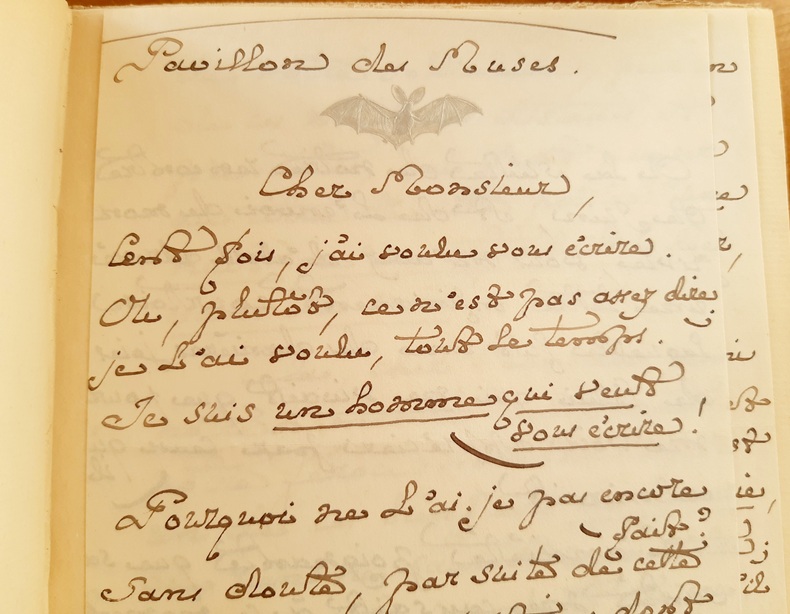 Pavillon des Muses.
Cher Monsieur,
Cent fois, j'ai voulu vous écrire.
Ou, plutôt, ce n'est pas assez dire
je l'ai voulu, tout le temps.
Je suis un homme qui veut
vous écrire!
Pourquoi ne l'ai-je pas encore
fait?
Sans doute, par suite de cette